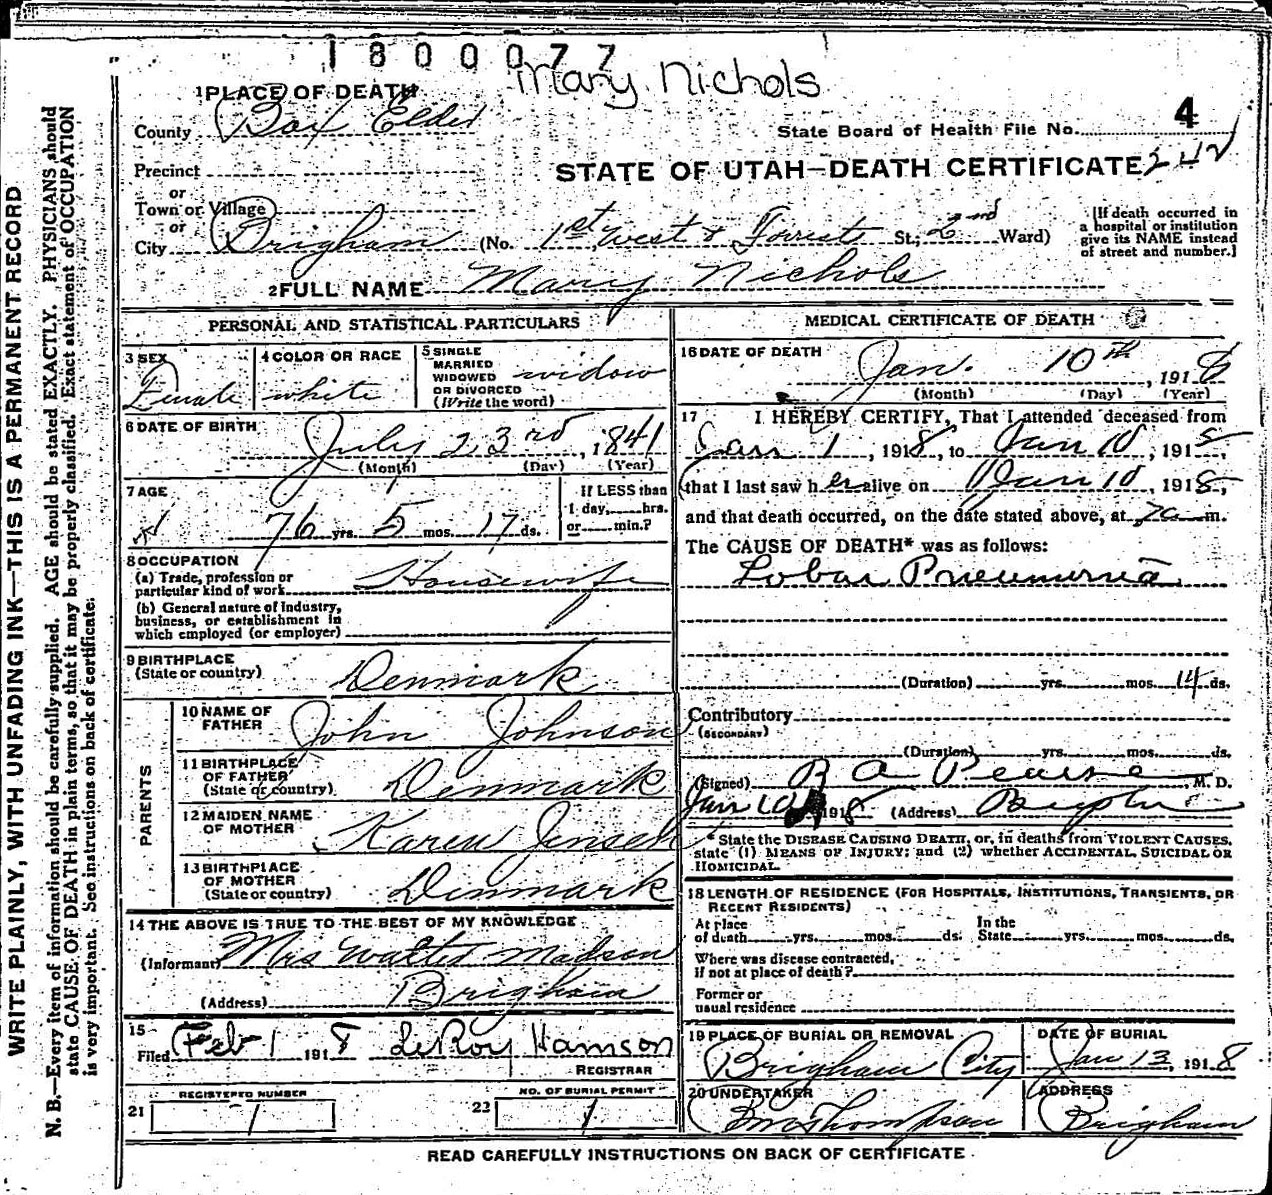 1800077
Mary Nichols
1 PLACE OF DEATH
County Box Elder
State Board of Health File No. 4
Precinct
STATE OF UTAH—DEATH CERTIFICATE 242
or
Town or Village
or
City Brigham (No. 1st West & Forrest St.; 2nd Ward)
[If death occurred in
a hospital or institution
give its NAME instead
of street and number.]
2 FULL NAME Mary Nichols
PERSONAL AND STATISTICAL PARTICULARS
3 SEX
Female
4 COLOR OR RACE
white
5 SINGLE
MARRIED
WIDOWED
OR DIVORCED
(Write the word)
widow
6 DATE OF BIRTH
July 23rd, 1841
(Month) (Day) (Year)
7 AGE
76 yrs. 5 mos. 17 ds.
If LESS than
1 day, hrs.
or min.?
8 OCCUPATION
(a) Trade, profession or
particular kind of work Housewife
(b) General nature of Industry,
business, or establishment in
which employed (or employer)
9 BIRTHPLACE
(State or country) Denmark
PARENTS
10 NAME OF
FATHER John Johnson
11 BIRTHPLACE
OF FATHER
(State or country) Denmark
12 MAIDEN NAME
OF MOTHER Karen Jensen
13 BIRTHPLACE
OF MOTHER
(State or country) Denmark
14 THE ABOVE IS TRUE TO THE BEST OF MY KNOWLEDGE
(Informant) Mrs Walter Madsen
(Address) Brigham
15
Filed Feb 1 1918 LeRoy
REGISTRAR
REGISTERED NUMBER
21 1
NO. OF BURIAL PERMIT
22 1
MEDICAL CERTIFICATE OF DEATH
16 DATE OF DEATH
Jan. 10th, 1918
(Month) (Day) (Year)
17 I HEREBY CERTIFY, That I attended deceased from
Jan 1, 1918, to Jan 10, 1918,
that I last saw her alive on Jan 10, 1918,
and that death occurred, on the date stated above, at 7 a m.
The CAUSE OF DEATH* was as follows:
Lobar Pneumonia
(Duration) yrs. mos. 14 ds.
Contributory
(SECONDARY)
(Duration) yrs. mos. ds.
(Signed) R A Pearse, M. D.
Jan 10 1918 (Address) Brigham
* State the DISEASE CAUSING DEATH, or, in deaths from VIOLENT CAUSES,
state (1) MEANS OF INJURY; and (2) whether ACCIDENTAL, SUICIDAL OR
HOMICIDAL.
18 LENGTH OF RESIDENCE (FOR HOSPITALS, INSTITUTIONS, TRANSIENTS, OR
RECENT RESIDENTS)
At place
of death yrs. mos. ds.
In the
State yrs. mos. ds.
Where was disease contracted,
if not at place of death?
Former or
usual residence
19 PLACE OF BURIAL OR REMOVAL
Brigham City
DATE OF BURIAL
Jan 13, 1918
20 UNDERTAKER
Thompson
ADDRESS
Brigham
READ CAREFULLY INSTRUCTIONS ON BACK OF CERTIFICATE
WRITE PLAINLY, WITH UNFADING INK—THIS IS A PERMANENT RECORD
N. B.—Every item of information should be carefully supplied. AGE should be stated EXACTLY. PHYSICIANS should
state CAUSE OF DEATH in plain terms, so that it may be properly classified. Exact statement of OCCUPATION
is very important. See instructions on back of certificate.